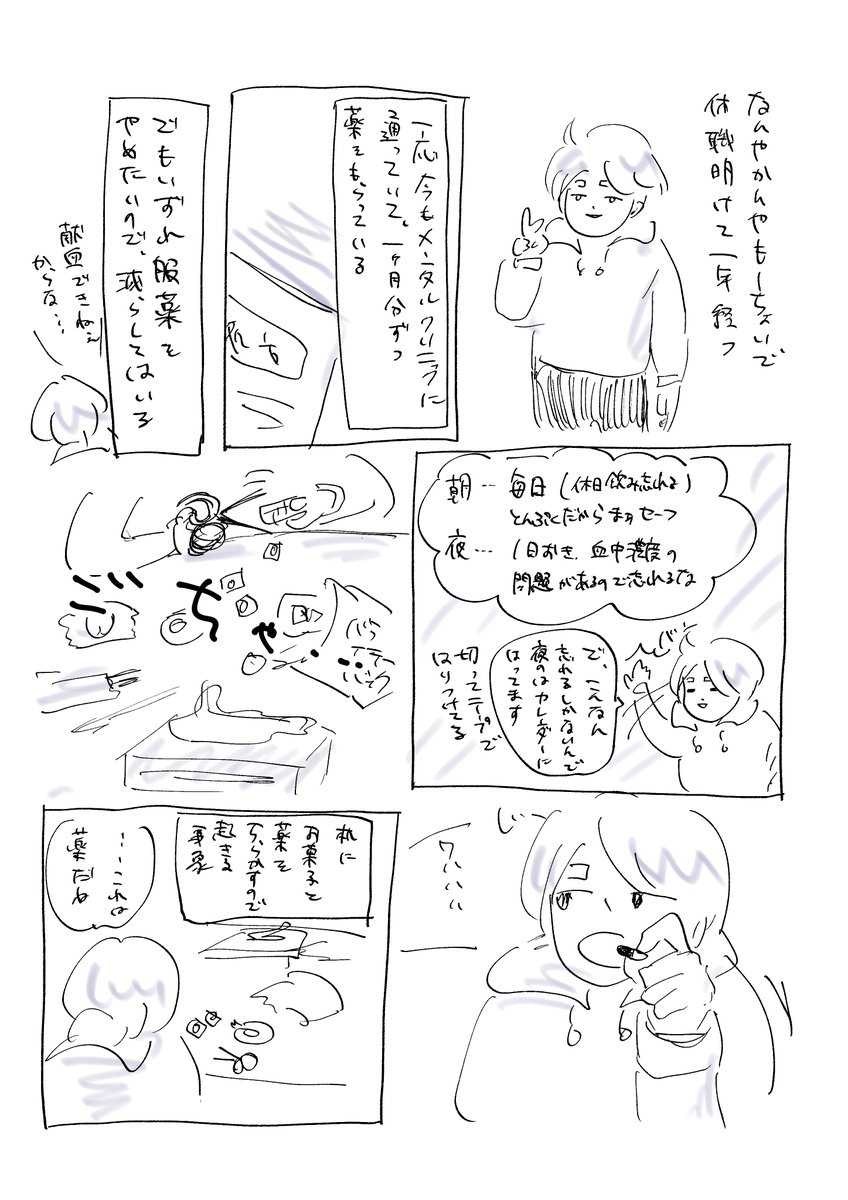 なんやかんやもーちょいで
休職明けて一年経つ
一応今もメンタルクリニックに
通っていて、一ヶ月分ずつ
薬をもらっている
でもいずれ服薬を
やめたいので、減らしてはいる
献血できねぇ
からな…
朝…毎日(休日飲み忘れる)
とんぷくだからまあセーフ
夜…1日おき、血中濃度の
問題があるので忘れるな
で、こんなん
忘れるしかないんで
夜のはカレンダーに
はってます
切ってテープで
はりつけてる
ごちゃ…
じっ
ワハハハ
机に
お菓子と
薬を
ちらかすので
起きる
事象
……これは
薬だね